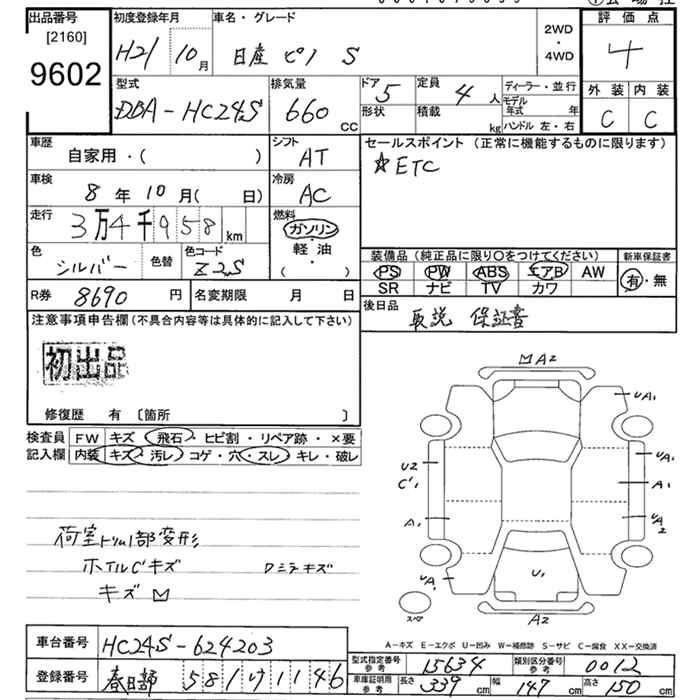 出品番号 初度登録年月 車名・グレード 2WD・4WD 評価点
[2160]
9602 H21 10月 日産 ピノ S 4
型式 排気量 ドア 5 定員 4人 ディーラー・並行 外装 内装
DBA-HC24S 660cc 形状 積載 kg モデル年式 年 ハンドル 左・右 C C
車歴 自家用・( ) シフト AT セールスポイント (正常に機能するものに限ります)
☆ETC
車検 8年10月( 日) 冷房 AC
走行 3万4千958km 燃料 ガソリン
軽油
( )
色 シルバー 色替 色コード Z2S
装備品 (純正品に限り○をつけてください) 新車保証書
PS PW ABS エアB AW 有・無
SR ナビ TV カワ
R券 8690円 名変期限 月 日 後日品 取説 保証書
注意事項申告欄(不具合内容等は具体的に記入して下さい)
初出品
修復歴 有 〔箇所 〕
検査員 FW キズ・飛石・ヒビ割・リペア跡・×要
記入欄 内装 キズ・汚レ・コゲ・穴・スレ・キレ・破レ
荷室トリム1部変形
ホイルCキズ Dミラキズ
キズ
A2
UA1
U2
C1
UA1
A1
A1
UA2
UA1
U1
スペア
A2
A-キズ E-エクボ U-凹み W-補修跡 S-サビ C-腐食 XX-交換済
車台番号 HC24S-624203
型式指定番号 参考 15634 類別区分番号 参考 0012
登録番号 春日部 581 け 1146
車庫証明用 参考 長さ 339cm 幅 147cm 高さ 150cm